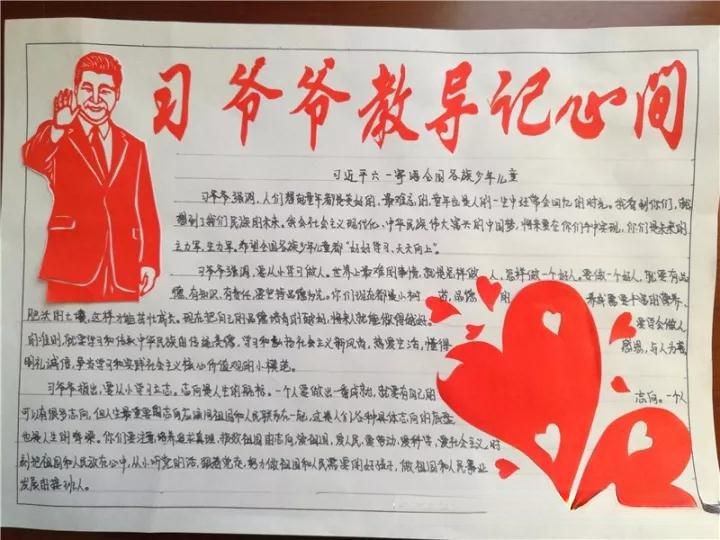 习爷爷教导记心间
习近平六一寄语全国各族少年儿童
习爷爷强调，人们想起童年都是美好的、最难忘的，童年也是人的一生中经常会回忆的时光。我看到你们，就
想到了我们民族的未来。我会社会主义现代化，中华民族伟大复兴的中国梦，将来要在你们手中实现，你们是未来的
主力军、生力军。希望全国各族少年儿童都“好好学习、天天向上”。
习爷爷强调，要从小学习做人。世界上最难的事情，就是怎样做人，怎样做一个好人。要做一个好人，就要有品
德、有知识、有责任，要坚持品德为先。你们现在都是小树苗，品德的养成需要丰富的营养、
肥沃的土壤，这样才能茁壮成长。现在把自己的品德培育的越好，将来人就能做得越好。要学会做人
的准则，就要学习和传承中华民族传统美德，学习和弘扬社会主义新风尚，热爱生活，懂得感恩，与人为善，
明礼诚信，争当学习和实践社会主义核心价值观的小模范。
习爷爷指出，要从小学习立志。志向是人生的航标。一个人要做出一番成就，就要有自己的志向。一个人
可以有很多志向，但人生最重要的志向应该同祖国和人民联系在一起，这是人们各种具体志向的底盘
也是人生的脊梁。你们要注意培养追求真理、报效祖国的志向，爱祖国，爱人民，爱劳动，爱科学，爱社会主义，时
刻把祖国和人民放在心中，从小听党的话、跟着党走，努力做祖国和人民需要的好孩子，做祖国和人民事业
发展的接班人。